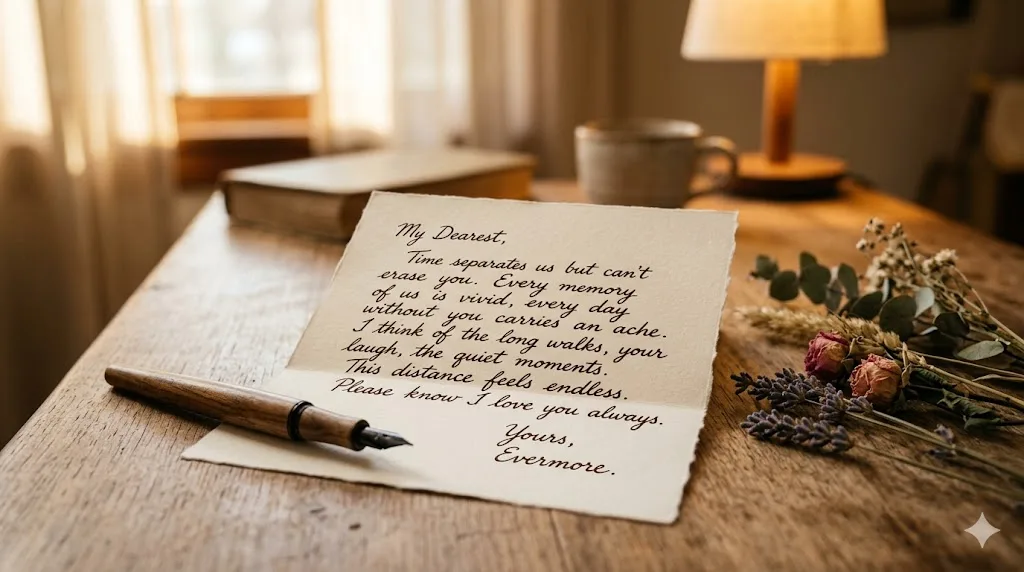 My Dearest,
Time separates us but can't
erase you. Every memory
of us is vivid, every day
without you carries an ache.
I think of the long walks, your
laugh, the quiet moments.
This distance feels endless.
Please know I love you always.
Yours,
Evermore.